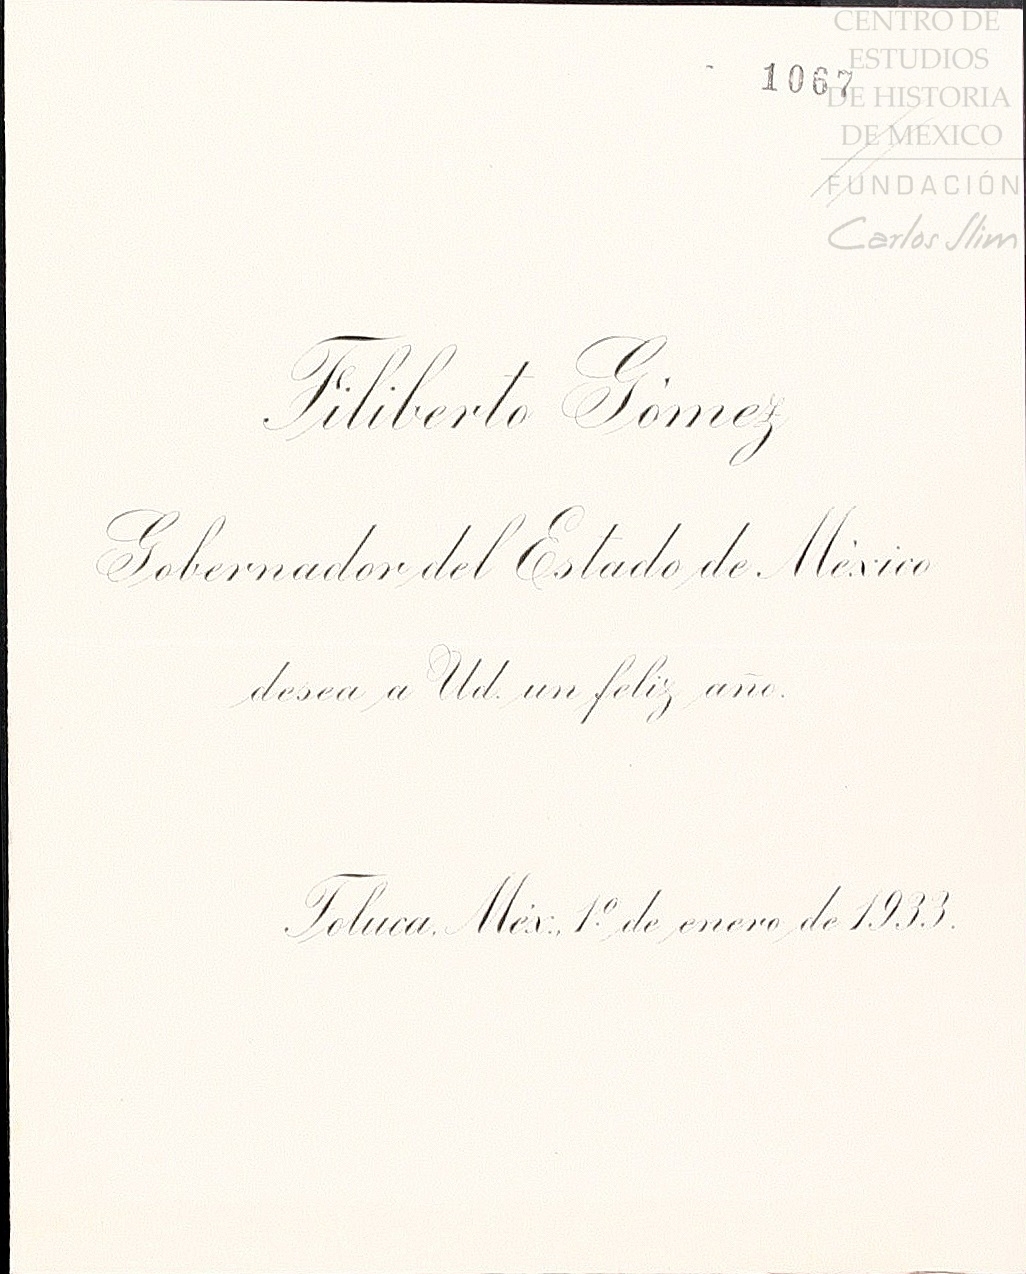 CENTRO DE
ESTUDIOS
DE HISTORIA
DE MÉXICO
FUNDACIÓN
Carlos Slim
1067
Filiberto Gómez
Gobernador del Estado de México
desea a Ud. un feliz año.
Toluca, Méx., 1º de enero de 1933.